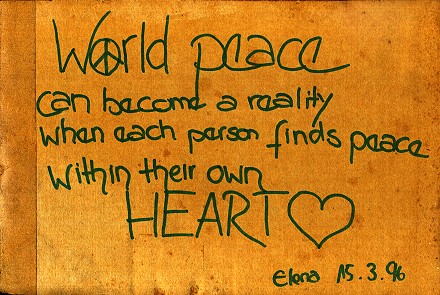 World peace
can become a reality
when each person finds peace
within their own
HEART ♡
Elena 15.3.96